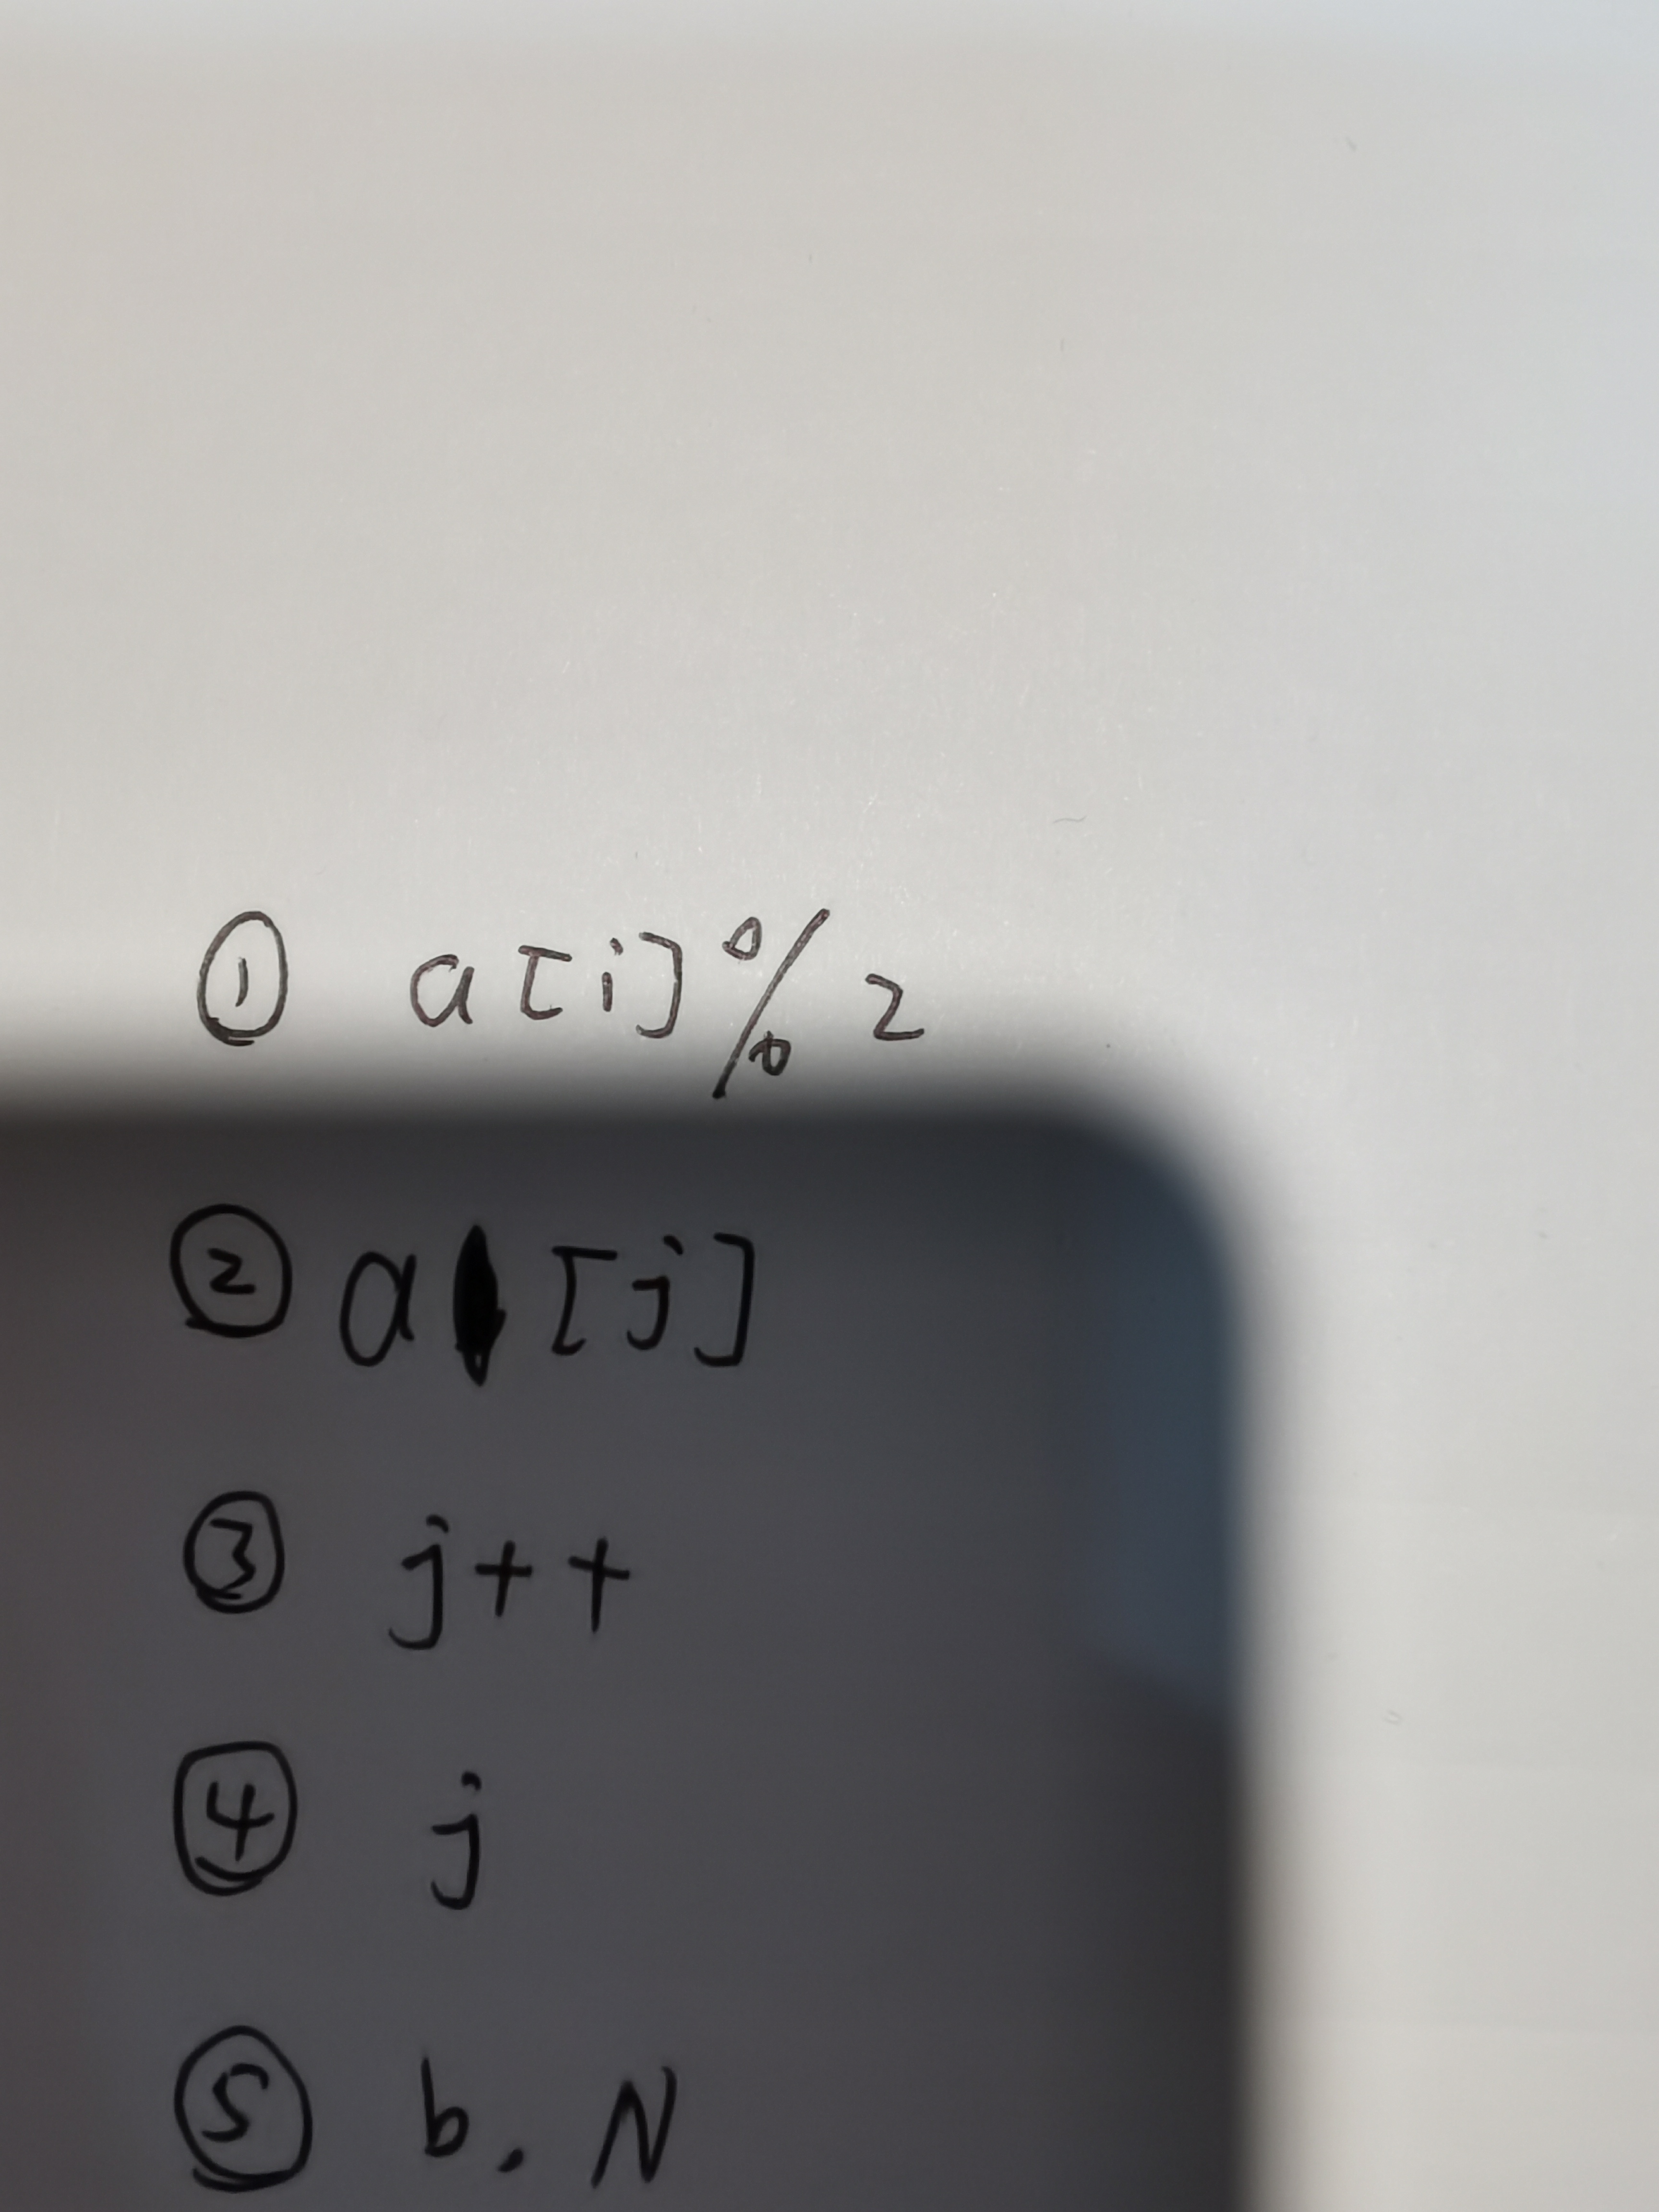 ① a[i]%2
② a[j]
③ j++
④ j
⑤ b, N